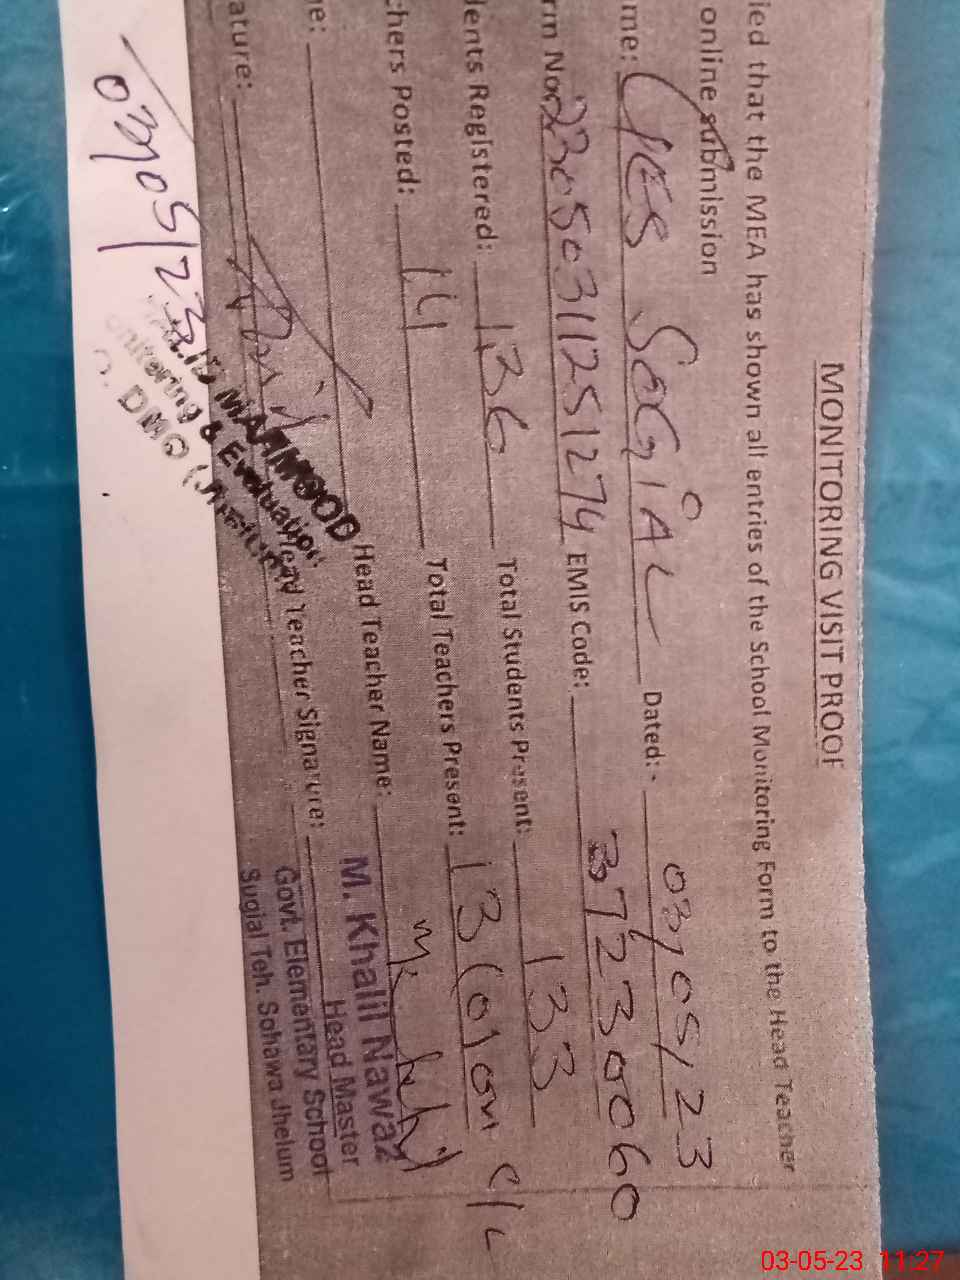 MONITORING VISIT PROOF
ied that the MEA has shown all entries of the School Monitoring Form to the Head Teacher
online submission
me: GES SOGIAL Dated:- 03/05/23
rm No: EMIS Code: 37230060
dents Registered: 136 Total Students Present: 133
chers Posted: 14 Total Teachers Present: 13 (01 on c/L
e: Head Teacher Name:
ature: Head Teacher Signature:
M. Khalil Nawaz
Head Master
Govt. Elementary School
Sugial Teh. Sohawa Jhelum
MAHMOOD
nitoring & Evaluation
DMO (
03/05/23
03-05-23 11:27